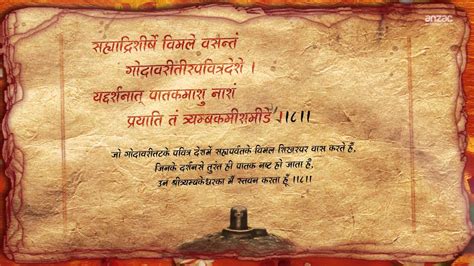 anzac
सह्याद्रिशीर्षे विमले वसन्तं
गोदावरीतीरपवित्रदेशे ।
यद्दर्शनात् पातकमाशु नाशं
प्रयाति तं त्र्यम्बकमीशमीडे ।।८।।
जो गोदावरीतटके पवित्र देशमें सह्यपर्वतके विमल शिखरपर वास करते हैं,
जिनके दर्शनसे तुरंत ही पातक नष्ट हो जाता है,
उन श्रीत्र्यम्बकेश्वरका मैं स्तवन करता हूँ ।।८।।